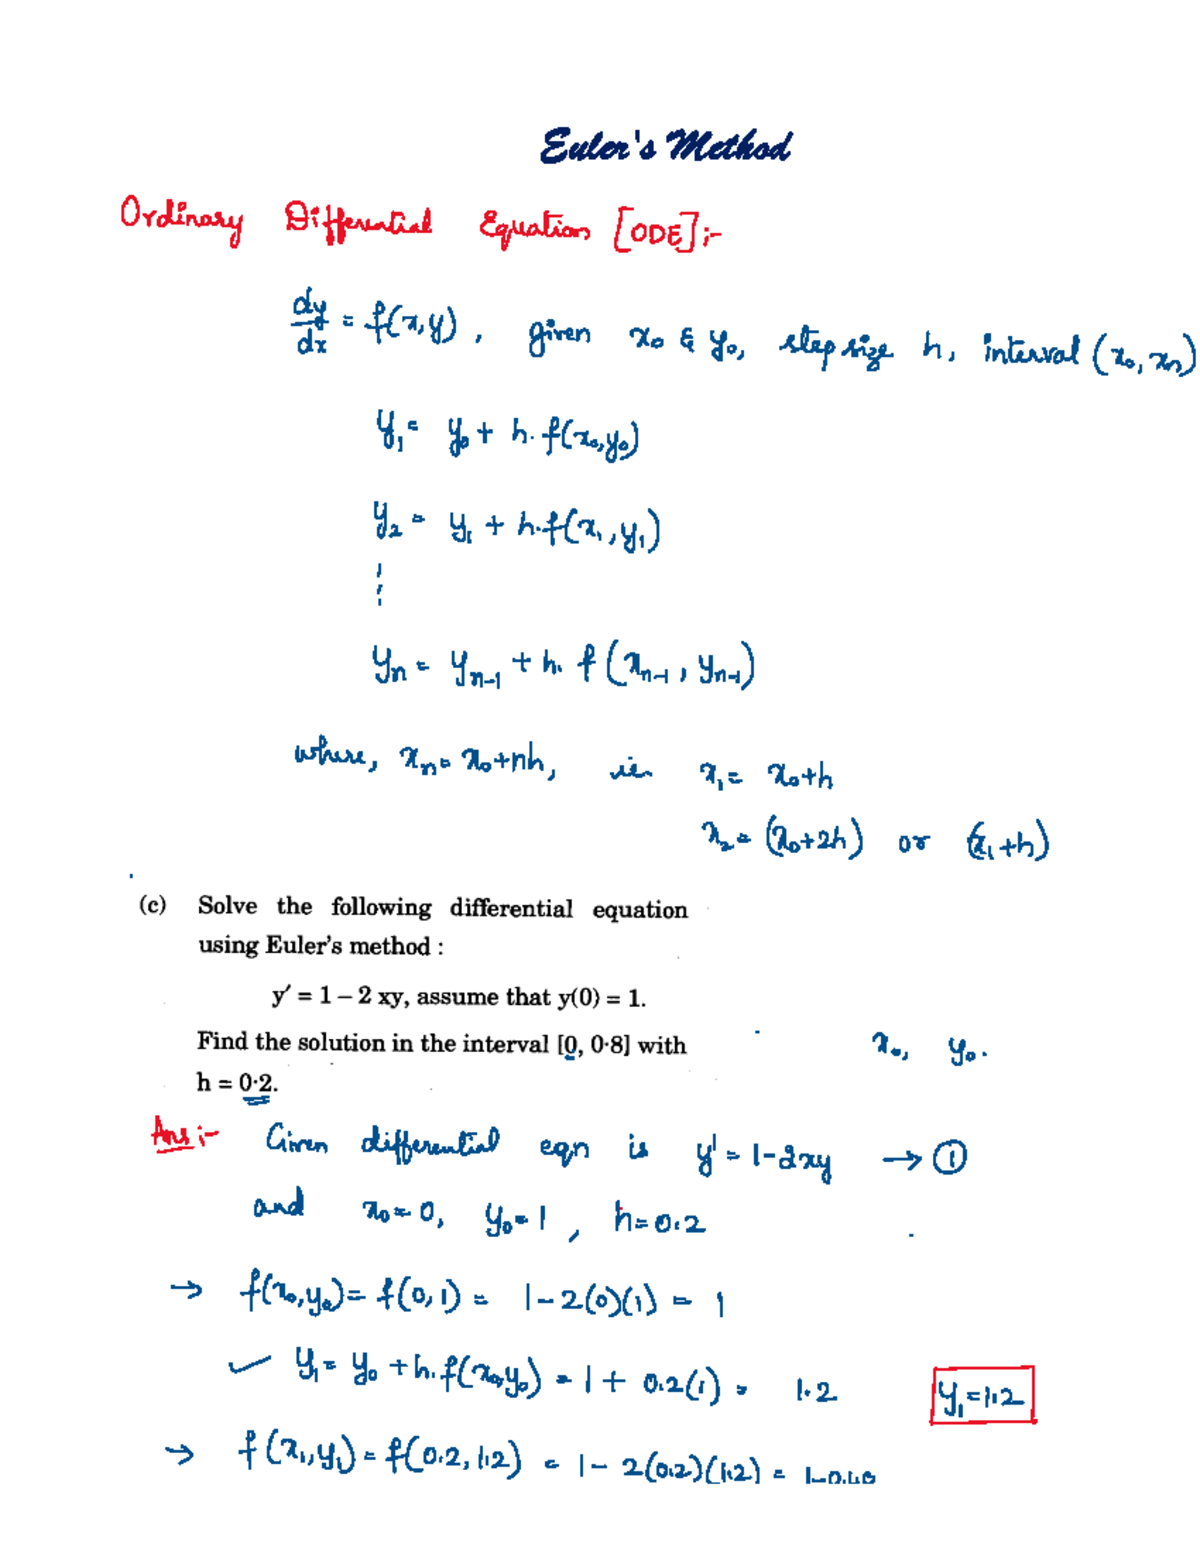 Euler's Method
Ordinary Differential Equation [ODE]:-
dy/dx = f(x,y), given x₀ & y₀, step size h, interval (x₀, xₙ)
y₁ = y₀ + h.f(x₀,y₀)
y₂ = y₁ + h.f(x₁,y₁)
⋮
yₙ = yₙ₋₁ + h. f(xₙ₋₁, yₙ₋₁)
where, xₙ = x₀+nh, ie x₁ = x₀+h
x₂ = (x₀+2h) or (x₁+h)
(c) Solve the following differential equation
using Euler's method :
y′ = 1 – 2 xy, assume that y(0) = 1.
Find the solution in the interval [0, 0·8] with
h = 0·2.
x₀, y₀.
Ans:- Given differential eqn is y' = 1-2xy → ①
and x₀ = 0, y₀ = 1, h = 0.2
→ f(x₀,y₀) = f(0,1) = 1-2(0)(1) = 1
✓ y₁ = y₀ + h.f(x₀,y₀) = 1 + 0.2(1) = 1.2 y₁ = 1.2
→ f(x₁,y₁) = f(0.2, 1.2) = 1 - 2(0.2)(1.2) =